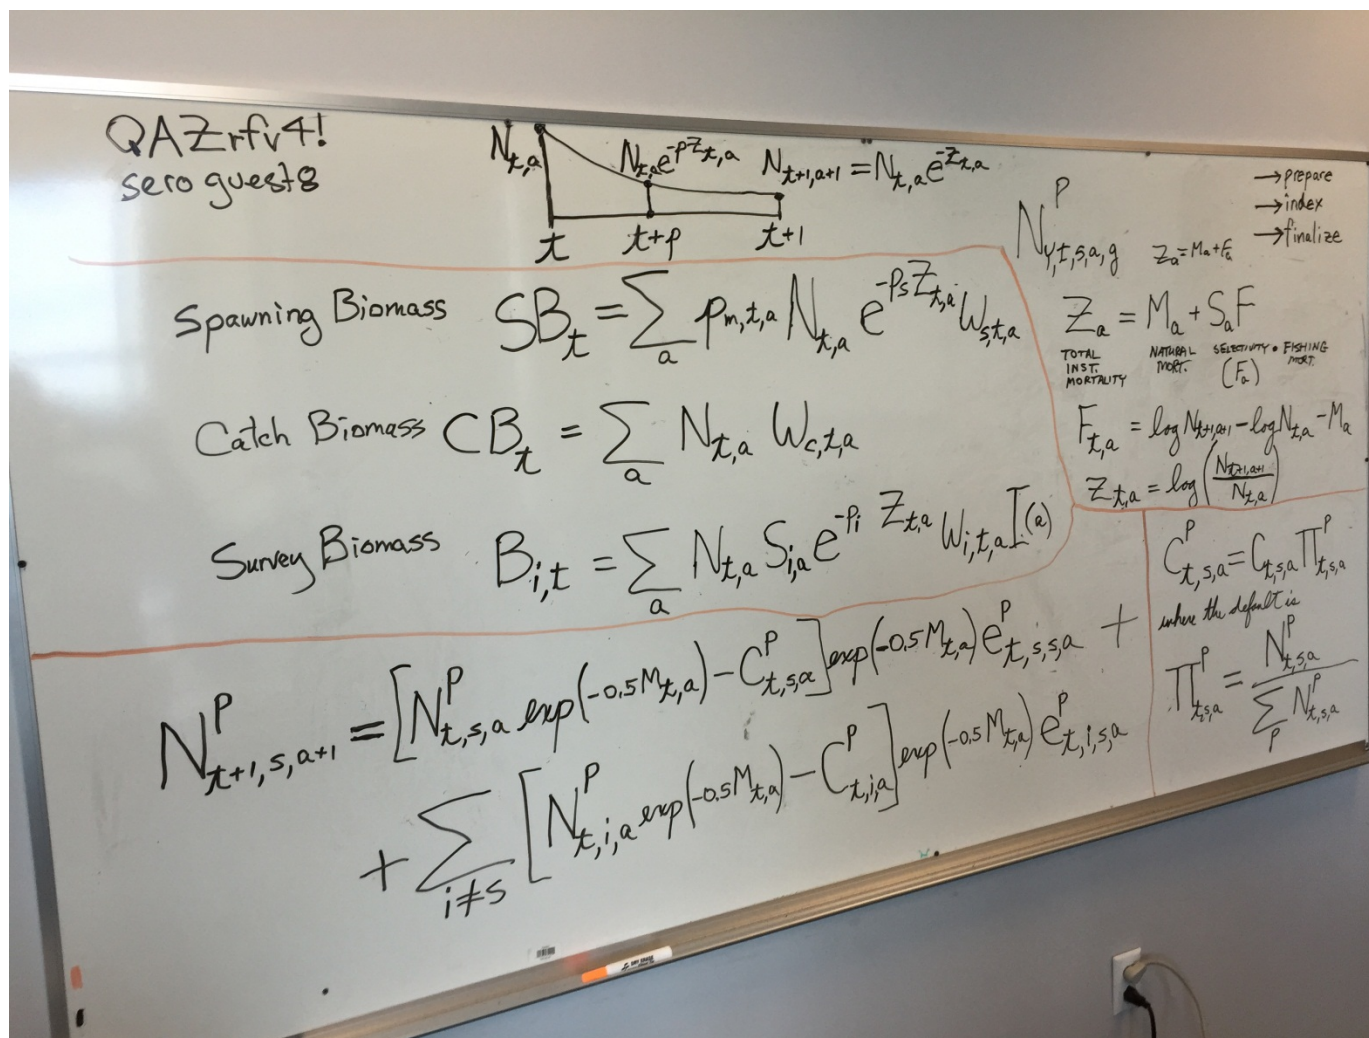 QAZrfv4!
sero guest8
N_{t,a}
N_{t,a}e^{-pZ_{t,a}}
N_{t+1,a+1} = N_{t,a}e^{-Z_{t,a}}
t
t+p
t+1
Spawning Biomass SB_t = ∑_a p_{m,t,a} N_{t,a} e^{-p_s Z_{t,a}} W_{s,t,a}
Catch Biomass CB_t = ∑_a N_{t,a} W_{c,t,a}
Survey Biomass B_{i,t} = ∑_a N_{t,a} S_{i,a} e^{-p_i Z_{t,a}} W_{i,t,a} I(a)
→ prepare
→ index
→ finalize
N^P_{y,t,s,a,g}
Z_a = M_a + F_a
Z_a = M_a + S_a F
TOTAL INST. MORTALITY
NATURAL MORT.
SELECTIVITY • FISHING MORT.
(F_a)
F_{t,a} = log N_{t+1,a+1} - log N_{t,a} - M_a
Z_{t,a} = log(N_{t+1,a+1} / N_{t,a})
C^P_{t,s,a} = C_{t,s,a} ∏^P_{t,s,a}
where the default is
∏^P_{t,s,a} = N^P_{t,s,a} / ∑_P N^P_{t,s,a}
N^P_{t+1,s,a+1} = [N^P_{t,s,a} exp(-0.5M_{t,a}) - C^P_{t,s,a}] exp(-0.5M_{t,a}) e^P_{t,s,s,a} +
+ ∑_{i≠s} [N^P_{t,i,a} exp(-0.5M_{t,a}) - C^P_{t,i,a}] exp(-0.5M_{t,a}) e^P_{t,i,s,a}